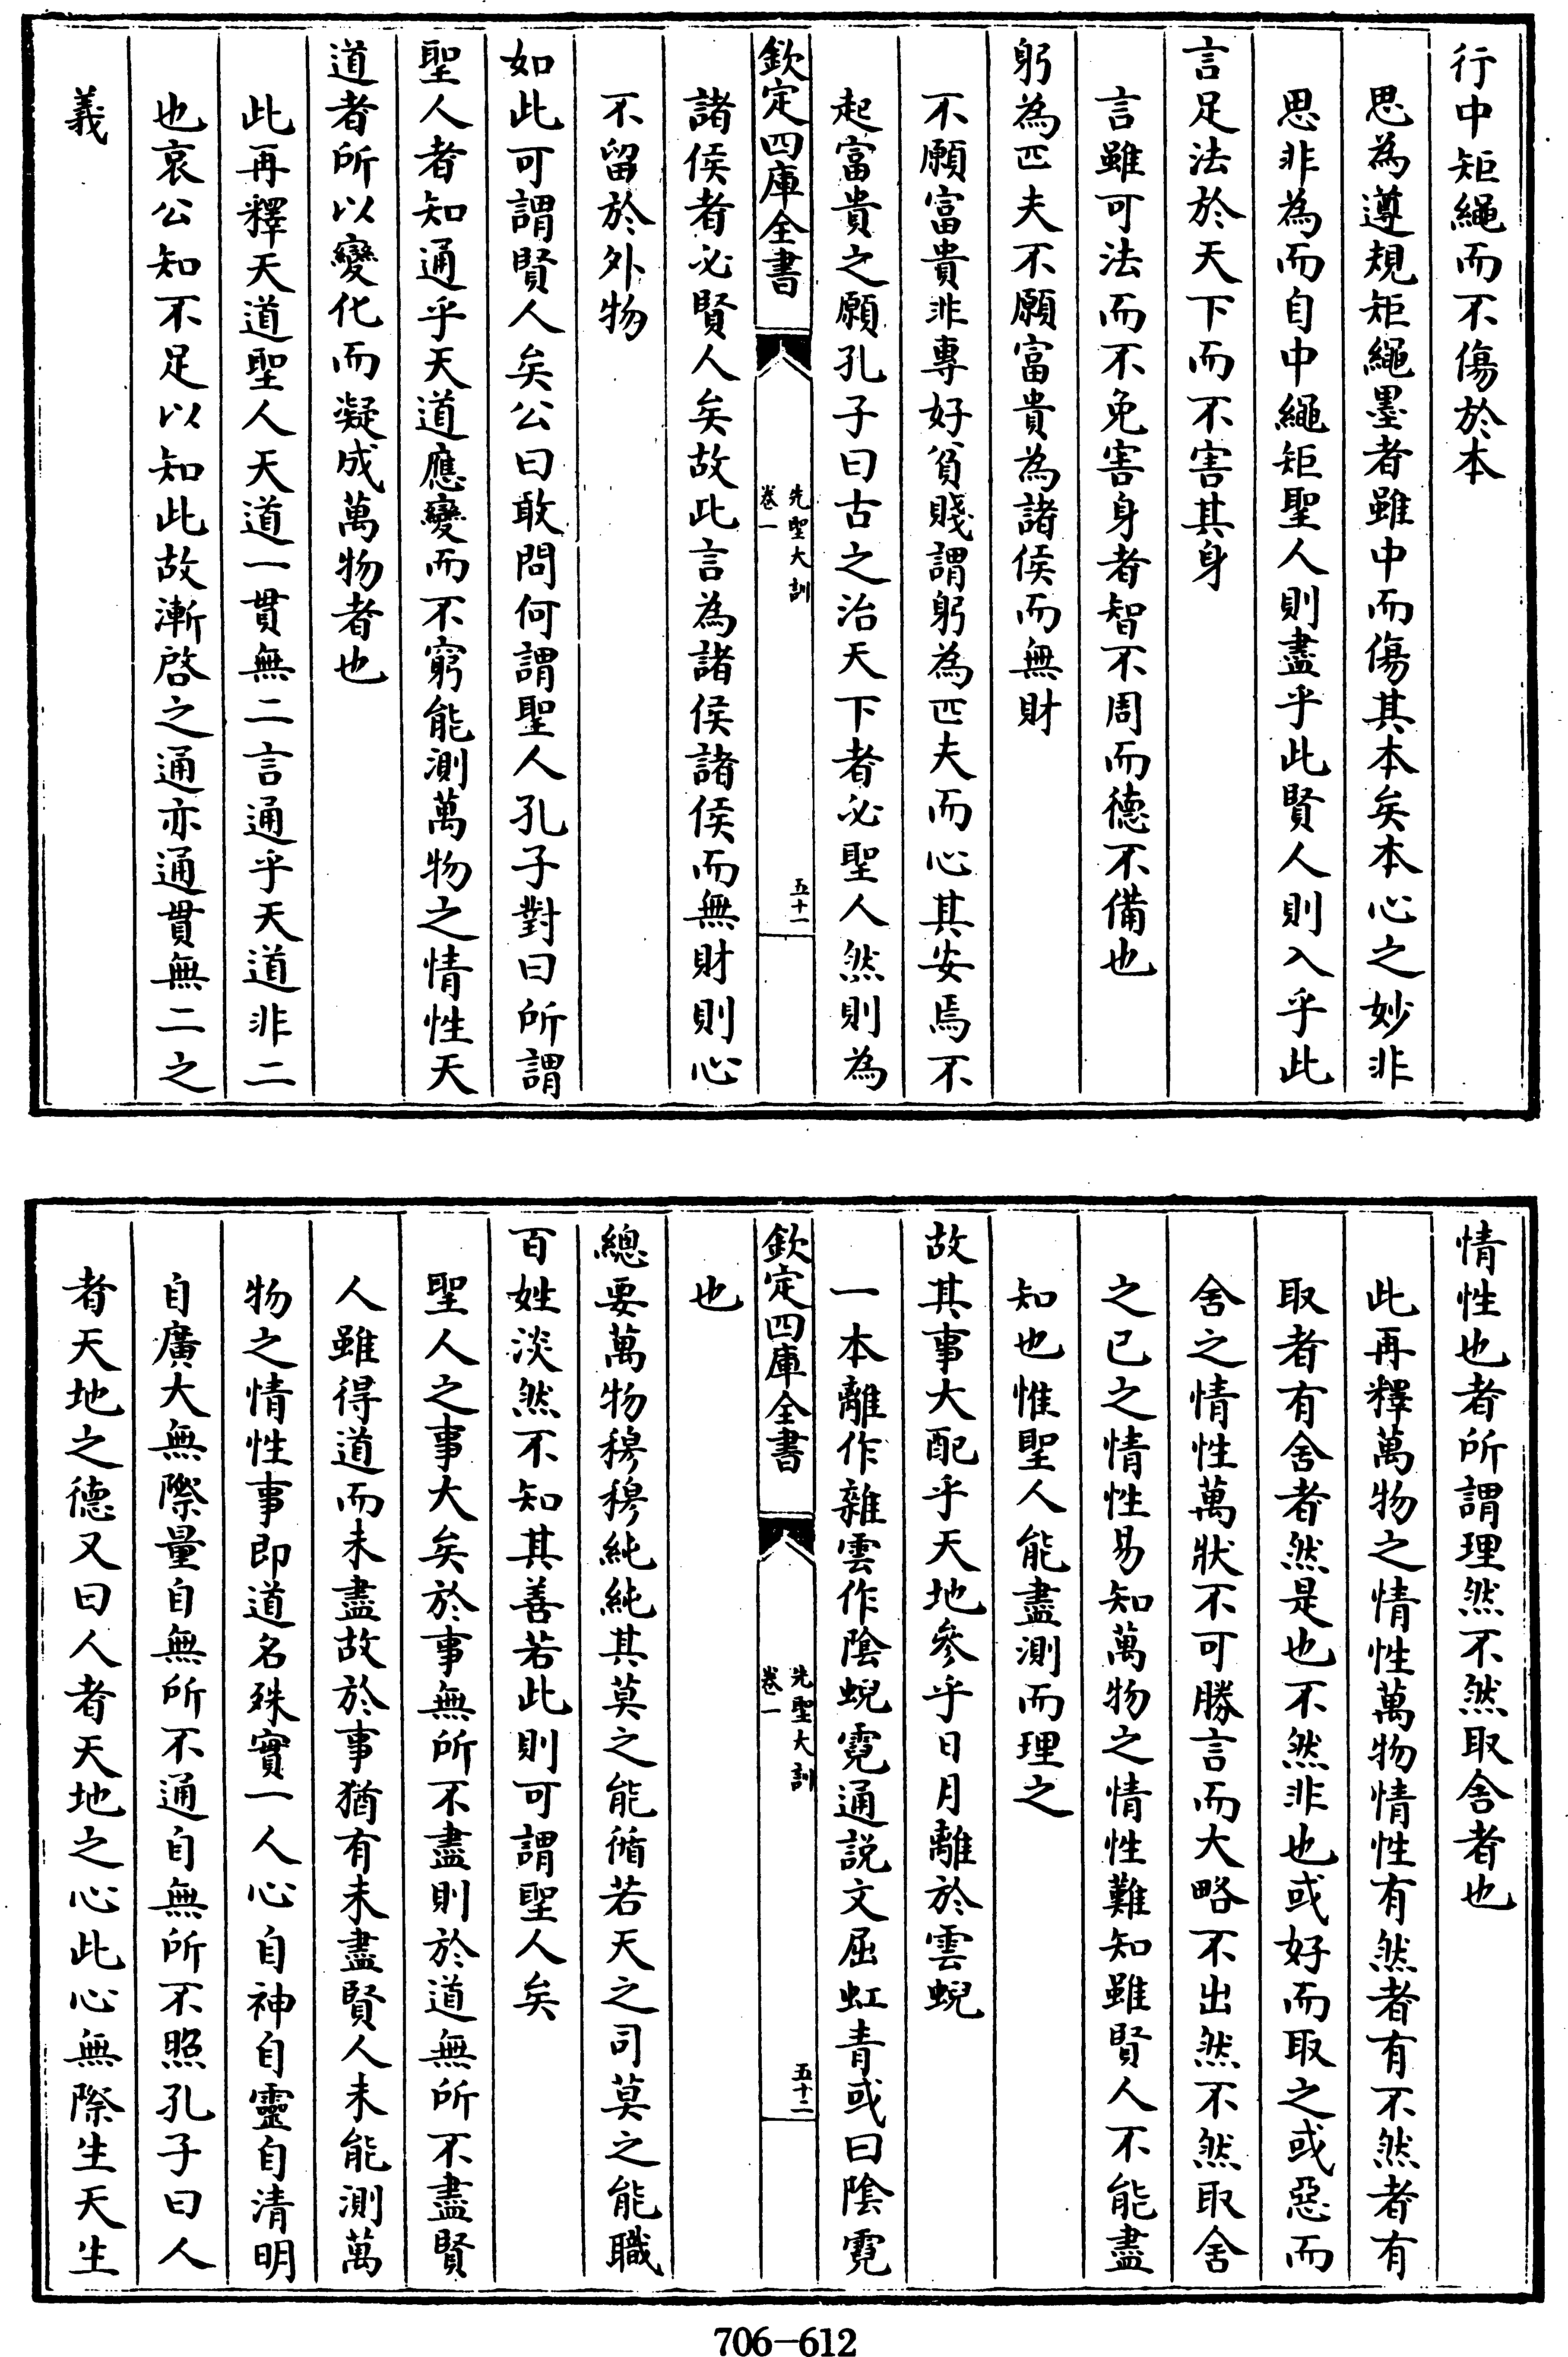 行中矩繩而不傷於本
思為遵規矩繩墨者雖中而傷其本矣本心之妙非
思非為而自中繩矩聖人則盡乎此賢人則入乎此
言足法於天下而不害其身
言雖可法而不免害身者智不周而德不備也
躬為匹夫不願富貴為諸侯而無財
不願富貴非專好貧賤謂躬為匹夫而心其安焉不
起富貴之願孔子曰古之治天下者必聖人然則為
欽定四庫全書
先聖大訓
卷一
五十一
諸侯者必賢人矣故此言為諸侯諸侯而無財則心
不留於外物
如此可謂賢人矣公曰敢問何謂聖人孔子對曰所謂
聖人者知通乎天道應變而不窮能測萬物之情性天
道者所以變化而凝成萬物者也
此再釋天道聖人天道一貫無二言通乎天道非二
也哀公知不足以知此故漸啓之通亦通貫無二之
義
情性也者所謂理然不然取舍者也
此再釋萬物之情性萬物情性有然者有不然者有
取者有舍者然是也不然非也或好而取之或惡而
舍之情性萬狀不可勝言而大略不出然不然取舍
之已之情性易知萬物之情性難知雖賢人不能盡
知也惟聖人能盡測而理之
故其事大配乎天地參乎日月離於雲蜺
一本離作雜雲作陰蜺霓通說文屈虹青或曰陰霓
欽定四庫全書
先聖大訓
卷一
五十二
也
總要萬物穆穆純純其莫之能循若天之司莫之能職
百姓淡然不知其善若此則可謂聖人矣
聖人之事大矣於事無所不盡則於道無所不盡賢
人雖得道而未盡故於事猶有未盡賢人未能測萬
物之情性事即道名殊實一人心自神自靈自清明
自廣大無際量自無所不通自無所不照孔子曰人
者天地之德又曰人者天地之心此心無際生天生
706-612